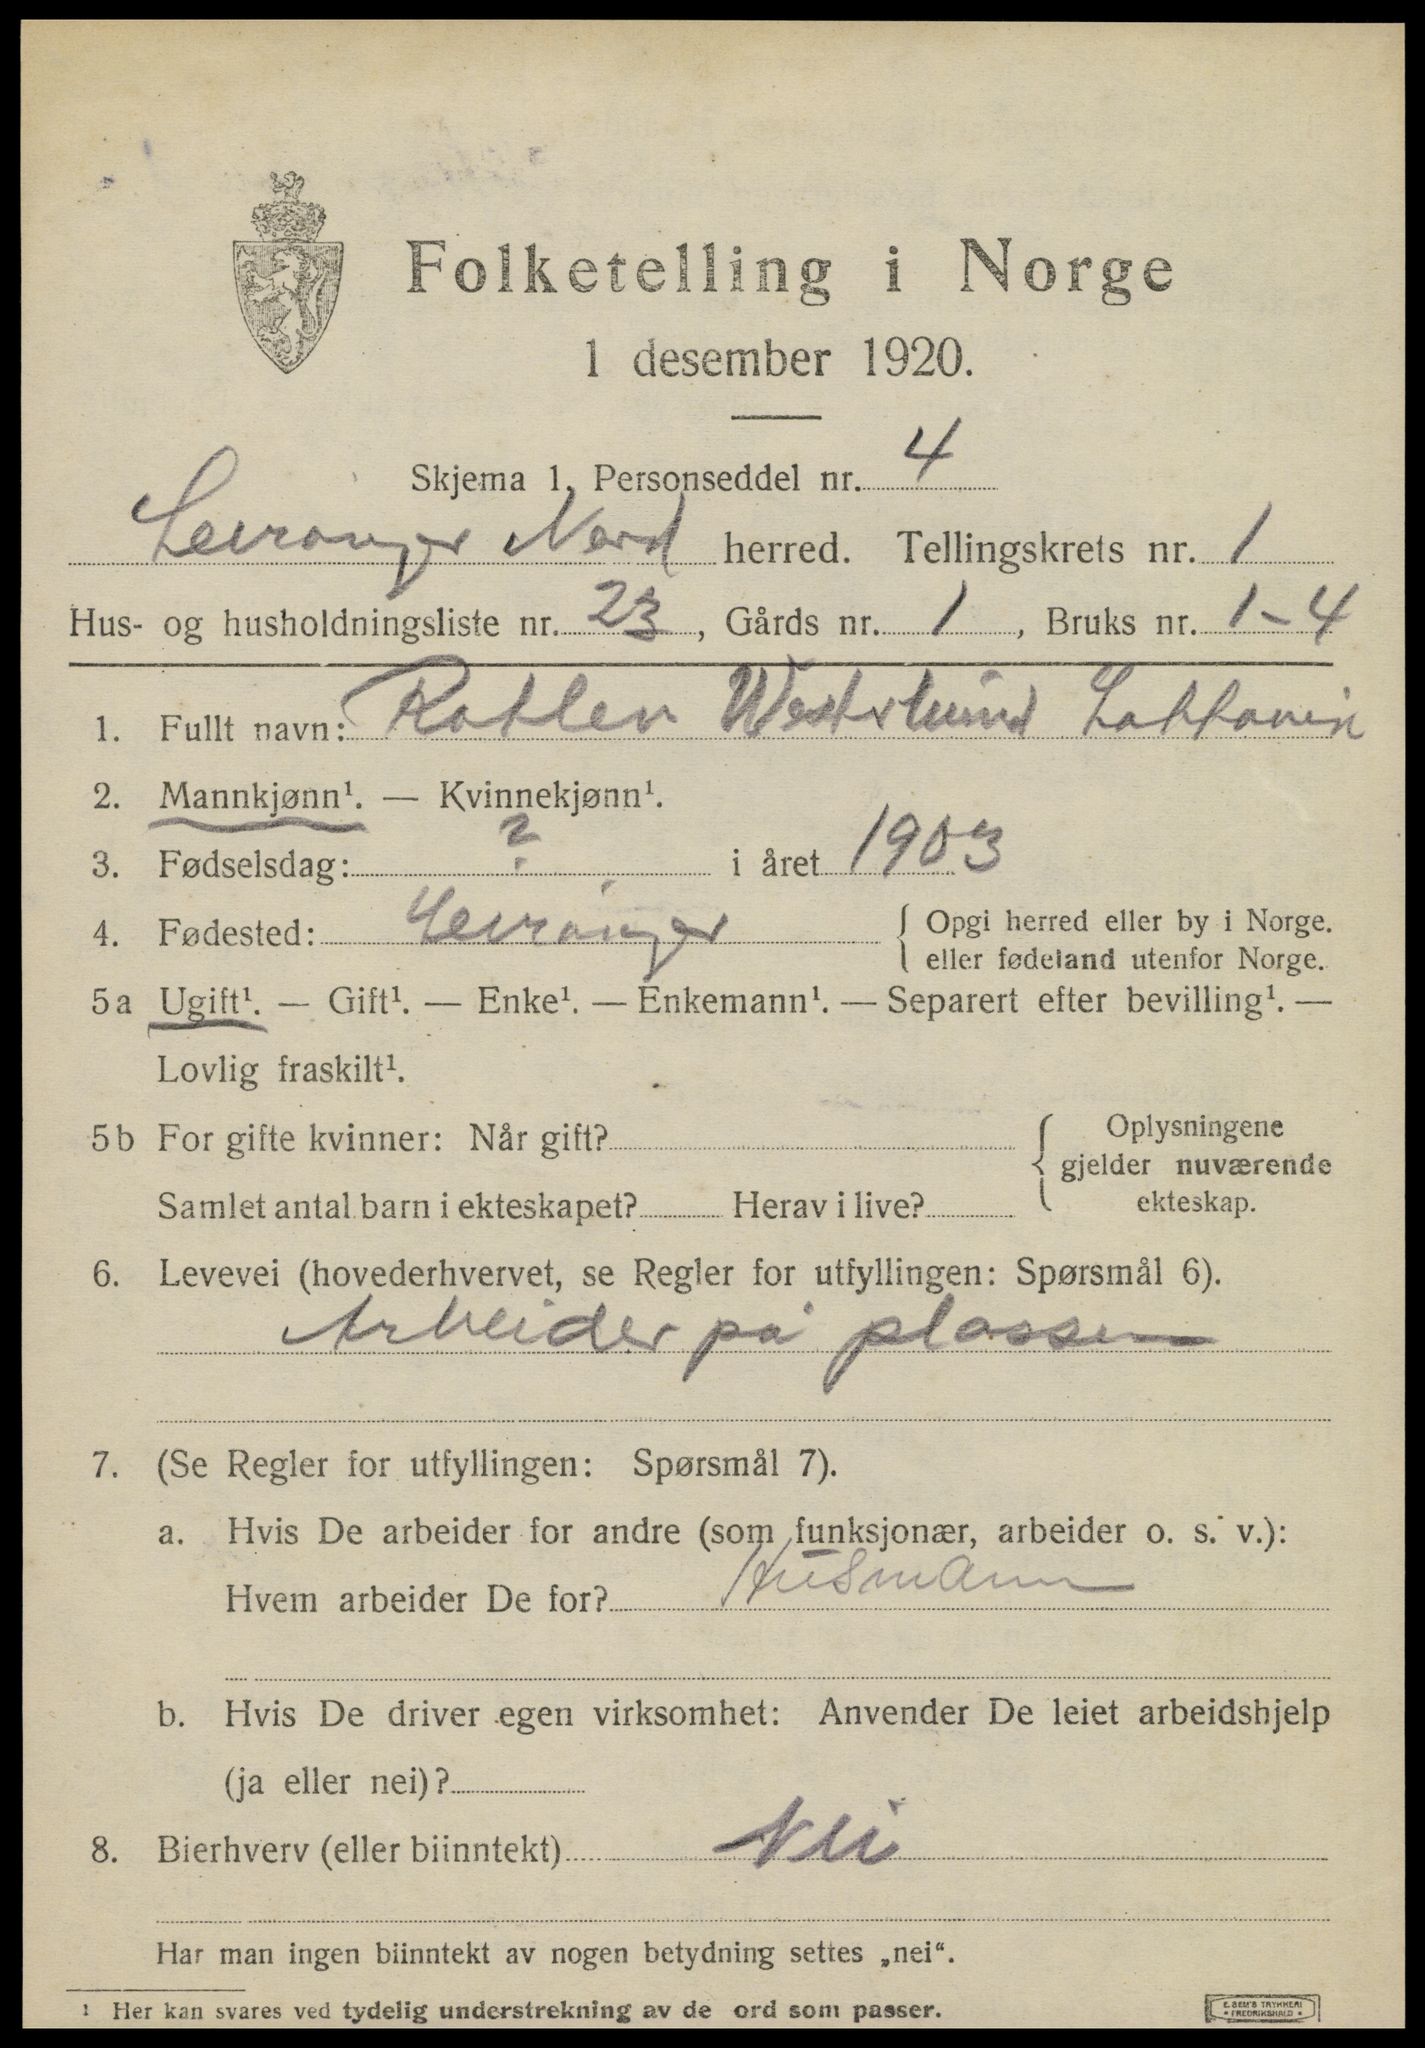 Folketelling i Norge
1 desember 1920.
Skjema 1, Personseddel nr. 4
Levanger Nord herred. Tellingskrets nr. 1
Hus- og husholdningsliste nr. 23, Gårds nr. 1, Bruks nr. 1-4
1. Fullt navn:
2. Mannkjønn¹. — Kvinnekjønn¹.
3. Fødselsdag: ? i året 1903
4. Fødested: Levanger { Opgi herred eller by i Norge.
eller fødeland utenfor Norge.
5a Ugift¹. — Gift¹. — Enke¹. — Enkemann¹. — Separert efter bevilling¹. —
Lovlig fraskilt¹.
5b For gifte kvinner: Når gift? { Oplysningene
gjelder nuværende
Samlet antal barn i ekteskapet? Herav i live? ekteskap.
6. Levevei (hovederhvervet, se Regler for utfyllingen: Spørsmål 6).
Arbeider på plassen
7. (Se Regler for utfyllingen: Spørsmål 7).
a. Hvis De arbeider for andre (som funksjonær, arbeider o. s. v.):
Hvem arbeider De for? Husmann
b. Hvis De driver egen virksomhet: Anvender De leiet arbeidshjelp
(ja eller nei)?
8. Bierhverv (eller biinntekt) Nei
Har man ingen biinntekt av nogen betydning settes „nei“.
¹ Her kan svares ved tydelig understrekning av de ord som passer.
E. SEM'S TRYKKERI
FREDRIKSHALD